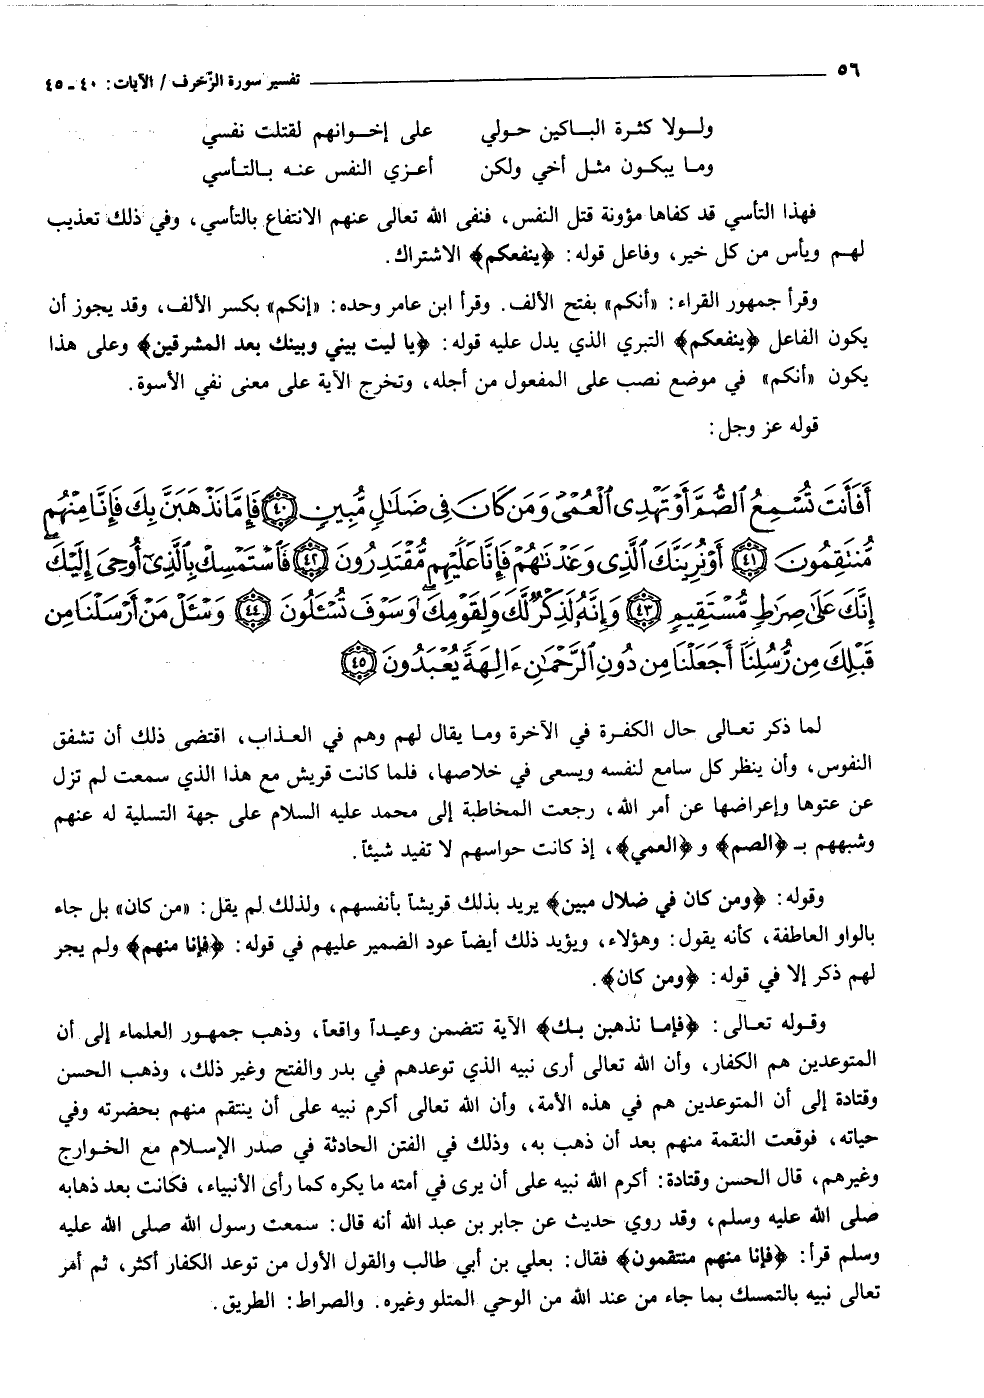 ٥٦ تفسير سورة الزّخرف / الآيات: ٤٠ - ٤٥
ولـولا كثرة البـاكين حـولي على إخـوانهم لقتلت نفسي
ومـا يبكـون مثـل أخي ولكن أعـزي النفس عنـه بـالتـأسي
فهذا التأسي قد كفاها مؤونة قتل النفس، فنفى الله تعالى عنهم الانتفاع بالتأسي، وفي ذلك تعذيب
لهـم ويأس من كل خير، وفاعل قوله: ﴿ينفعكم﴾ الاشتراك.
وقرأ جمهور القراء: «أنكم» بفتح الألف. وقرأ ابن عامر وحده: «إنكم» بكسر الألف، وقد يجوز أن
يكون الفاعل ﴿ينفعكم﴾ التبري الذي يدل عليه قوله: ﴿يا ليت بيني وبينك بعد المشرقين﴾ وعلى هذا
يكون «أنكم» في موضع نصب على المفعول من أجله، وتخرج الآية على معنى نفي الأسوة.
قوله عز وجل:
أَفَأَنتَ تُسْمِعُ الصُّمَّ أَوْ تَهْدِى الْعُمْىَ وَمَن كَانَ فِى ضَلَالٍ مُّبِينٍ ﴿٤٠﴾ فَإِمَّا نَذْهَبَنَّ بِكَ فَإِنَّا مِنْهُم
مُّنتَقِمُونَ ﴿٤١﴾ أَوْ نُرِيَنَّكَ الَّذِى وَعَدْنَاهُمْ فَإِنَّا عَلَيْهِم مُّقْتَدِرُونَ ﴿٤٢﴾ فَاسْتَمْسِكْ بِالَّذِىٓ أُوحِىَ إِلَيْكَ
إِنَّكَ عَلَىٰ صِرَاطٍ مُّسْتَقِيمٍ ﴿٤٣﴾ وَإِنَّهُ لَذِكْرٌ لَّكَ وَلِقَوْمِكَ وَسَوْفَ تُسْئَلُونَ ﴿٤٤﴾ وَسْئَلْ مَنْ أَرْسَلْنَا مِن
قَبْلِكَ مِن رُّسُلِنَآ أَجَعَلْنَا مِن دُونِ الرَّحْمَـٰنِ ءَالِهَةً يُعْبَدُونَ ﴿٤٥﴾
لما ذكر تعـالى حال الكفـرة في الآخرة ومـا يقال لهم وهم في العـذاب، اقتضى ذلك أن تشفق
النفوس، وأن ينظر كل سامع لنفسه ويسعى في خلاصها، فلما كانت قريش مع هذا الذي سمعت لم تزل
عن عتوها وإعراضها عن أمر الله، رجعت المخاطبة إلى محمد عليه السلام على جهة التسلية له عنهم
وشبههم بـ ﴿الصم﴾ و ﴿العمي﴾، إذ كانت حواسهم لا تفيد شيئاً.
وقوله: ﴿ومن كان في ضلال مبين﴾ يريد بذلك قريشاً بأنفسهم، ولذلك لم يقل: «من كان» بل جاء
بالواو العاطفة، كأنه يقول: وهؤلاء، ويؤيد ذلك أيضاً عود الضمير عليهم في قوله: ﴿فإنا منهم﴾ ولم يجر
لهم ذكر إلا في قوله: ﴿ومن كان﴾.
وقـوله تعـالى: ﴿فإمـا نذهبن بـك﴾ الآية تتضمن وعيـداً واقعـاً، وذهب جمهـور العلماء إلى أن
المتوعدين هم الكفار، وأن الله تعالى أرى نبيه الذي توعدهم في بدر والفتح وغير ذلك، وذهب الحسن
وقتادة إلى أن المتوعدين هم في هذه الأمة، وأن الله تعالى أكرم نبيه على أن ينتقم منهم بحضرته وفي
حياته، فوقعت النقمة منهم بعد أن ذهب به، وذلك في الفتن الحادثة في صدر الإسـلام مع الخـوارج
وغيرهم، قال الحسن وقتادة: أكرم الله نبيه على أن يرى في أمته ما يكره كما رأى الأنبياء، فكانت بعد ذهابه
صلى الله عليه وسلم، وقد روي حديث عن جابر بن عبد الله أنه قال: سمعت رسول الله صلى الله عليه
وسلم قرأ: ﴿فإنا منهم منتقمون﴾ فقال: بعلي بن أبي طالب والقول الأول من توعد الكفار أكثر، ثم أمر
تعالى نبيه بالتمسك بما جاء من عند الله من الوحي المتلو وغيره. والصراط: الطريق.